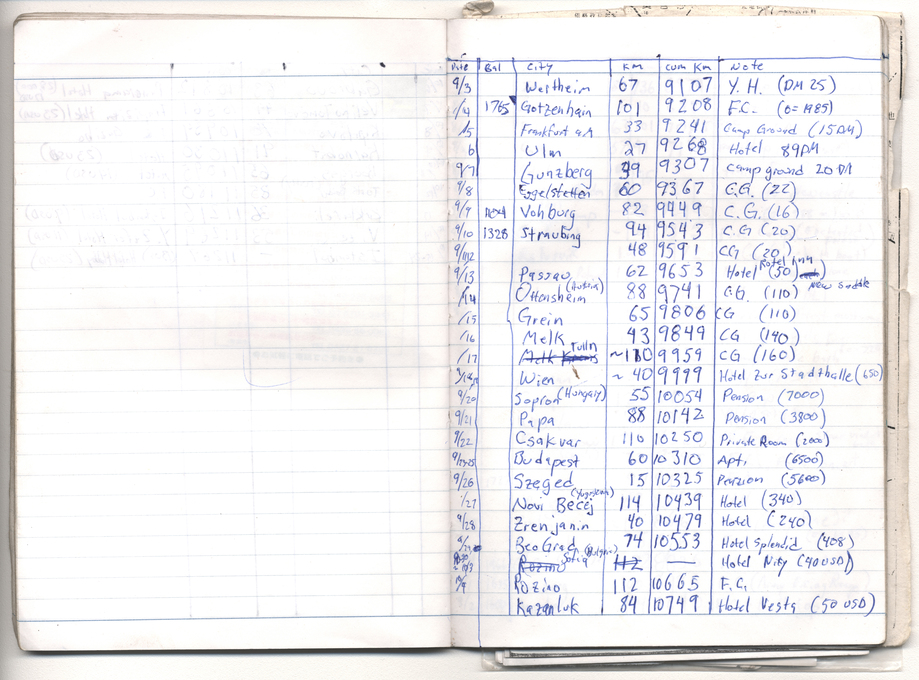 Date Bal City km cum km Note
9/3 Wertheim 67 9107 Y.H. (DM 25)
/4 1765 Gotzenhain 101 9208 F.C.
/5 Frankfurt a.M 33 9241 Camp Ground (15DM)
6 Ulm 27 9268 Hotel 89DM
9/7 Gunzberg 39 9307 camp ground 20 DM
9/8 60 9367 C.G. (22)
9/9 Vohburg 82 9449 C.G. (16)
9/10 1328 Straubing 94 9543 C.G (20)
48 9591 CG (20)
9/13 Passau 62 9653 Hotel (50) Rotel Inn
/14 Ottensheim (Austria) 88 9741 C.G. (110) New saddle
/15 Grein 65 9806 CG (110)
/16 Melk 43 9849 CG (140)
/17 Melk Tulln ~110 9959 CG (160)
Wien ~ 40 9999 Hotel Zur Stadthalle (650)
9/20 Sopron (Hungary) 55 10054 Pension (7000)
9/21 Papa 88 10142 Pension (3800)
9/22 Csakvar 110 10250 Private Room (2000)
9/23-25 Budapest 60 10310 Apt. (6500)
9/26 Szeged 15 10325 Penzion (5600)
/27 Novi Becej (Yugoslavia) 114 10439 Hotel (340)
9/28 Zrenjanin 40 10479 Hotel (240)
9/29 BeoGrad 74 10553 Hotel Splendid (408)
Rozino Sofia (Bulgaria) 112 — Hotel Niky (40USD)
Rozino 112 10665 F.C.
Kazanluk 84 10749 Hotel Vesta (50 USD)